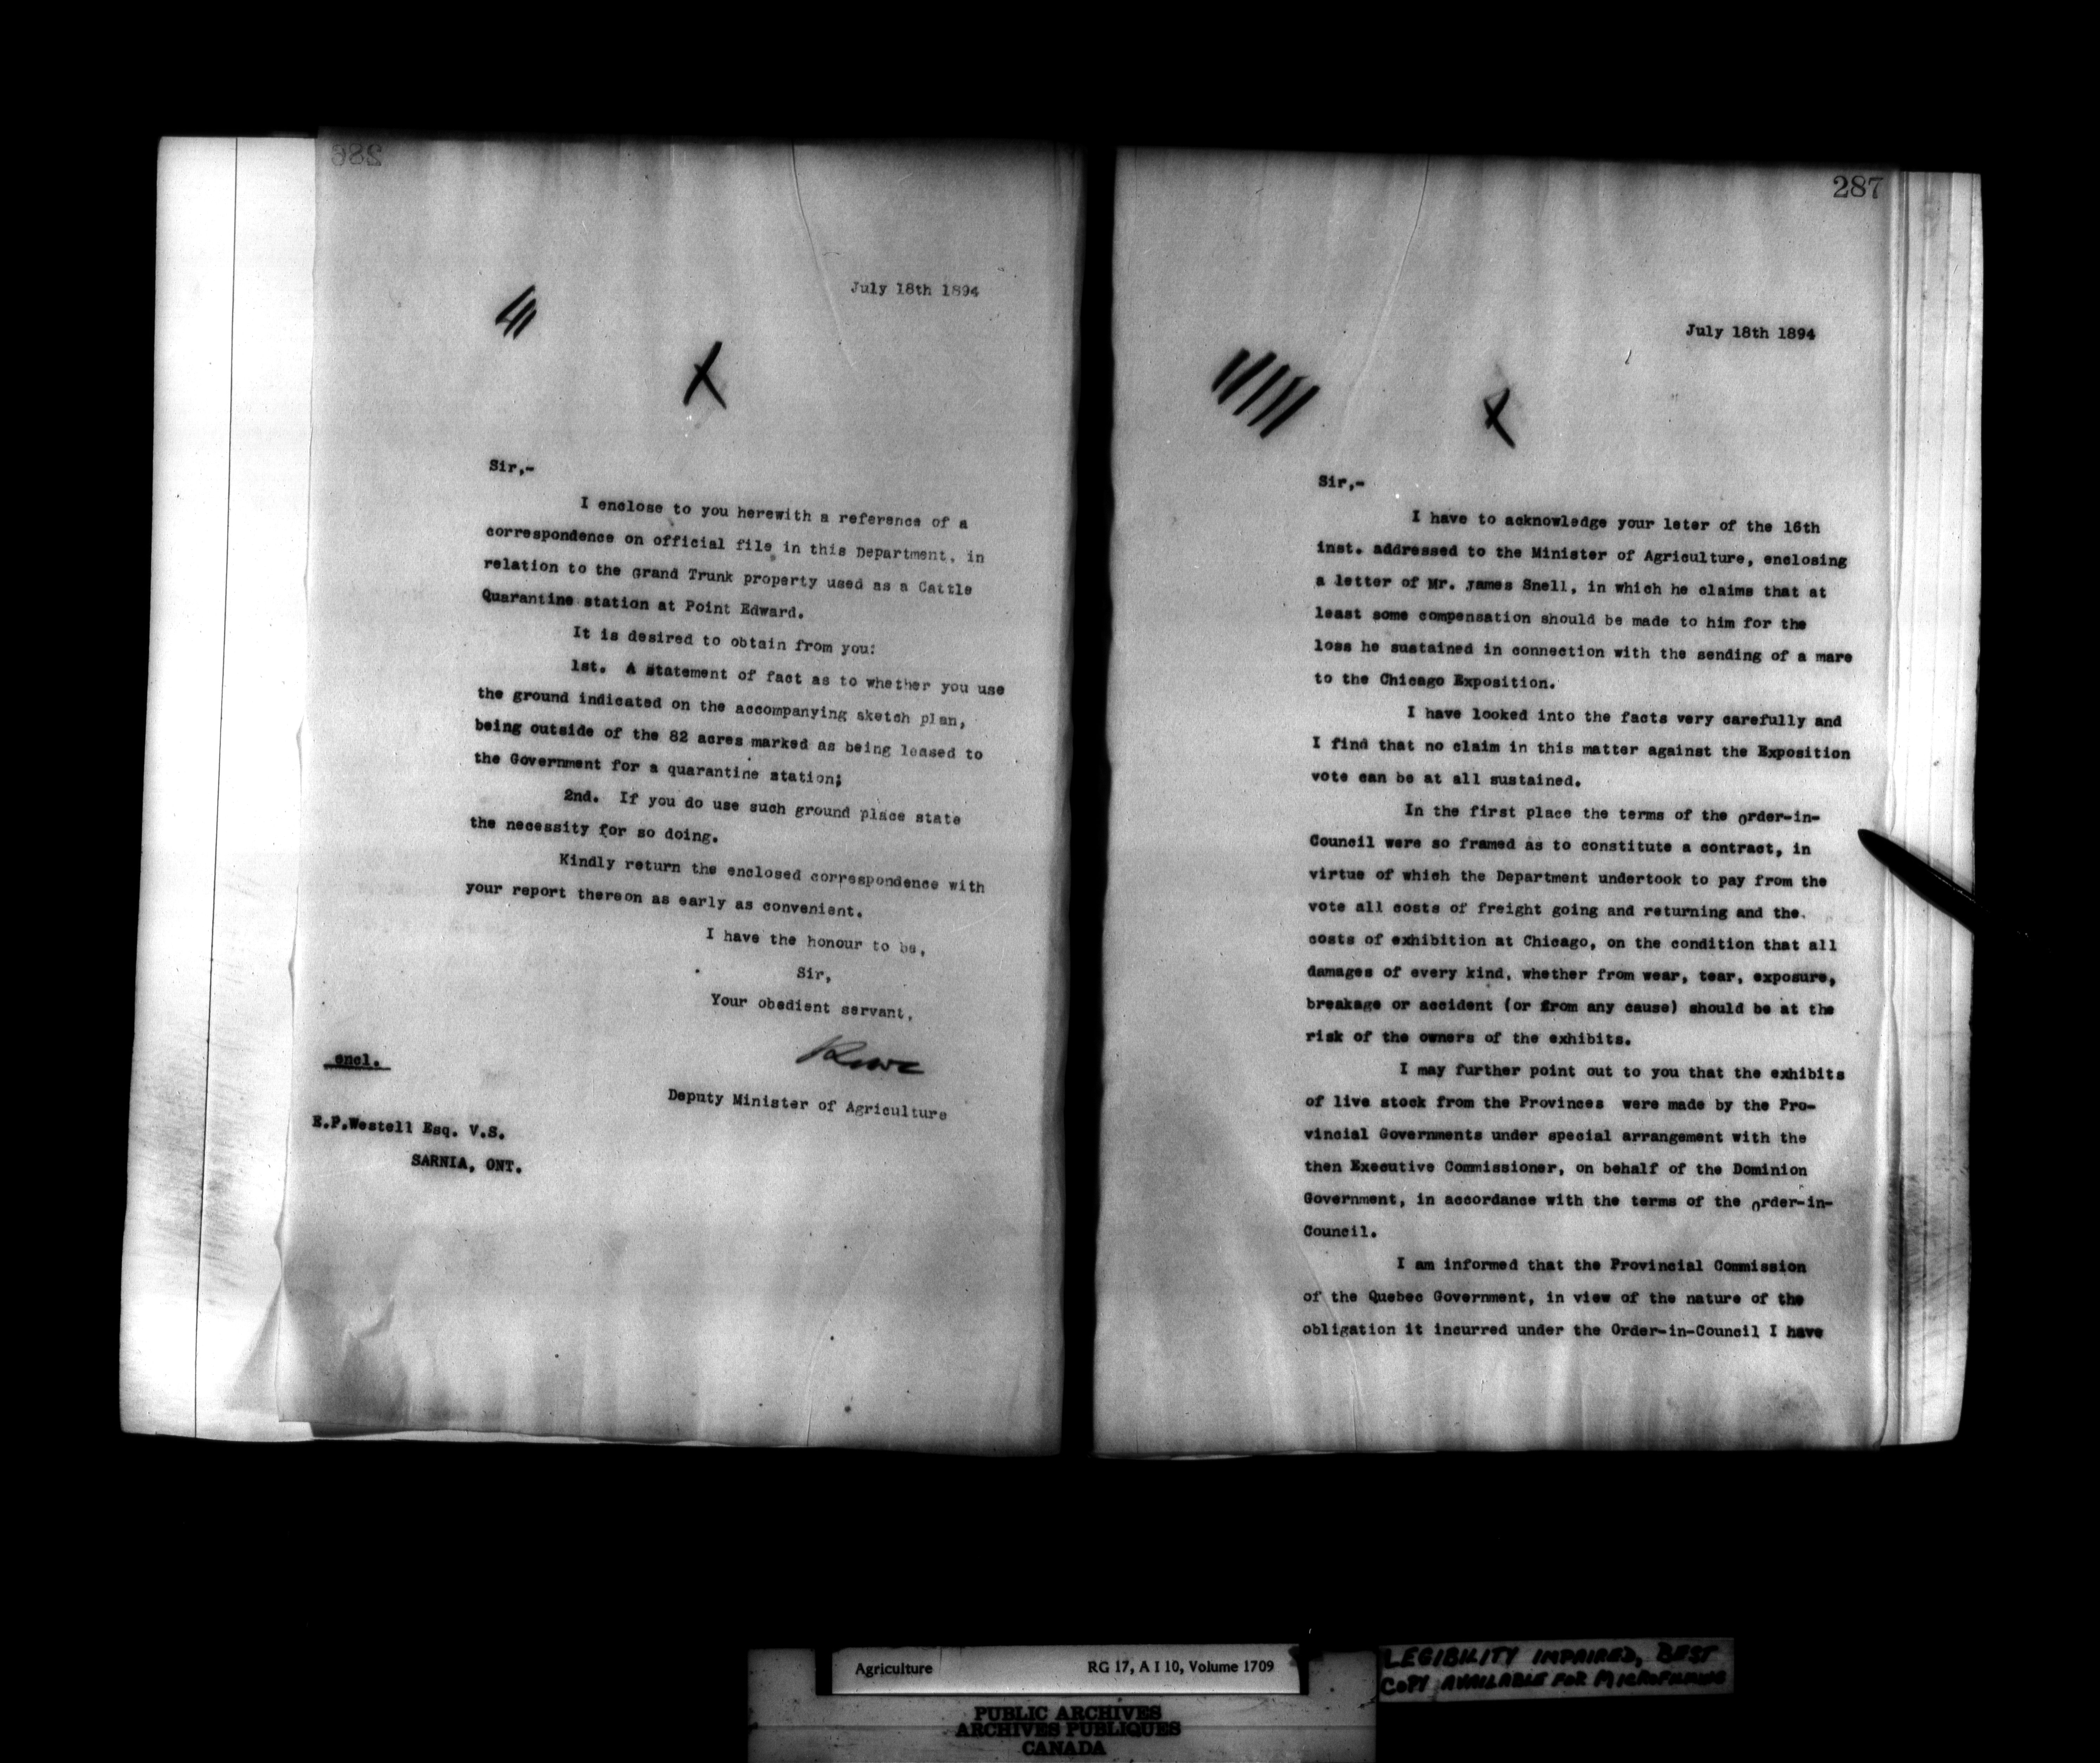 286
July 18th 1894
Sir,-
I enclose to you herewith a reference of a
correspondence on official file in this Department, in
relation to the Grand Trunk property used as a Cattle
Quarantine station at Point Edward.
It is desired to obtain from you:
1st. A statement of fact as to whether you use
the ground indicated on the accompanying sketch plan,
being outside of the 82 acres marked as being leased to
the Government for a quarantine station;
2nd. If you do use such ground place state
the necessity for so doing.
Kindly return the enclosed correspondence with
your report thereon as early as convenient.
I have the honour to be,
Sir,
Your obedient servant,
encl.
Deputy Minister of Agriculture
E.P.Westell Esq. V.S.
SARNIA, ONT.
287
July 18th 1894
Sir,-
I have to acknowledge your leter of the 16th
inst. addressed to the Minister of Agriculture, enclosing
a letter of Mr. James Snell, in which he claims that at
least some compensation should be made to him for the
loss he sustained in connection with the sending of a mare
to the Chicago Exposition.
I have looked into the facts very carefully and
I find that no claim in this matter against the Exposition
vote can be at all sustained.
In the first place the terms of the Order-in-
Council were so framed as to constitute a contract, in
virtue of which the Department undertook to pay from the
vote all costs of freight going and returning and the
costs of exhibition at Chicago, on the condition that all
damages of every kind, whether from wear, tear, exposure,
breakage or accident (or from any cause) should be at the
risk of the owners of the exhibits.
I may further point out to you that the exhibits
of live stock from the Provinces were made by the Pro-
vincial Governments under special arrangement with the
then Executive Commissioner, on behalf of the Dominion
Government, in accordance with the terms of the Order-in-
Council.
I am informed that the Provincial Commission
of the Quebec Government, in view of the nature of the
obligation it incurred under the Order-in-Council I have
Agriculture RG 17, A I 10, Volume 1709
LEGIBILITY IMPAIRED, BEST
COPY AVAILABLE FOR MICROFILMING
PUBLIC ARCHIVES
ARCHIVES PUBLIQUES
CANADA